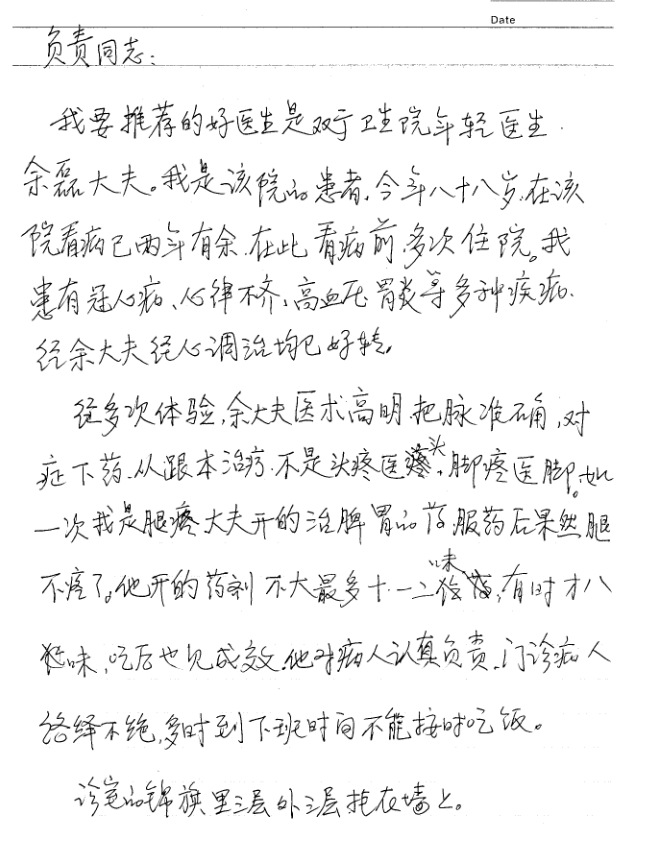 Date
负责同志:
我要推荐的好医生是双于卫生院年轻医生.
余磊大夫。我是该院的患者,今年八十八岁,在该
院看病已两年有余.在此看病前,多次住院。我
患有冠心病、心律不齐、高血压、胃炎等多种疾病.
经余大夫经心调治均已好转。
经多次体验,余大夫医术高明.把脉准确,对
症下药.从跟本治疗.不是头疼医头,脚疼医脚。如
一次我是腿疼大夫开的治脾胃的药,服药后果然腿
不疼了。他开的药剂不大最多十一二味,有时才八
味,吃后也见成效.他对病人认真负责.门诊病人
络绎不绝,多时到下班时间不能按时吃饭。
诊室的锦旗里三层外三层挂在墙上。